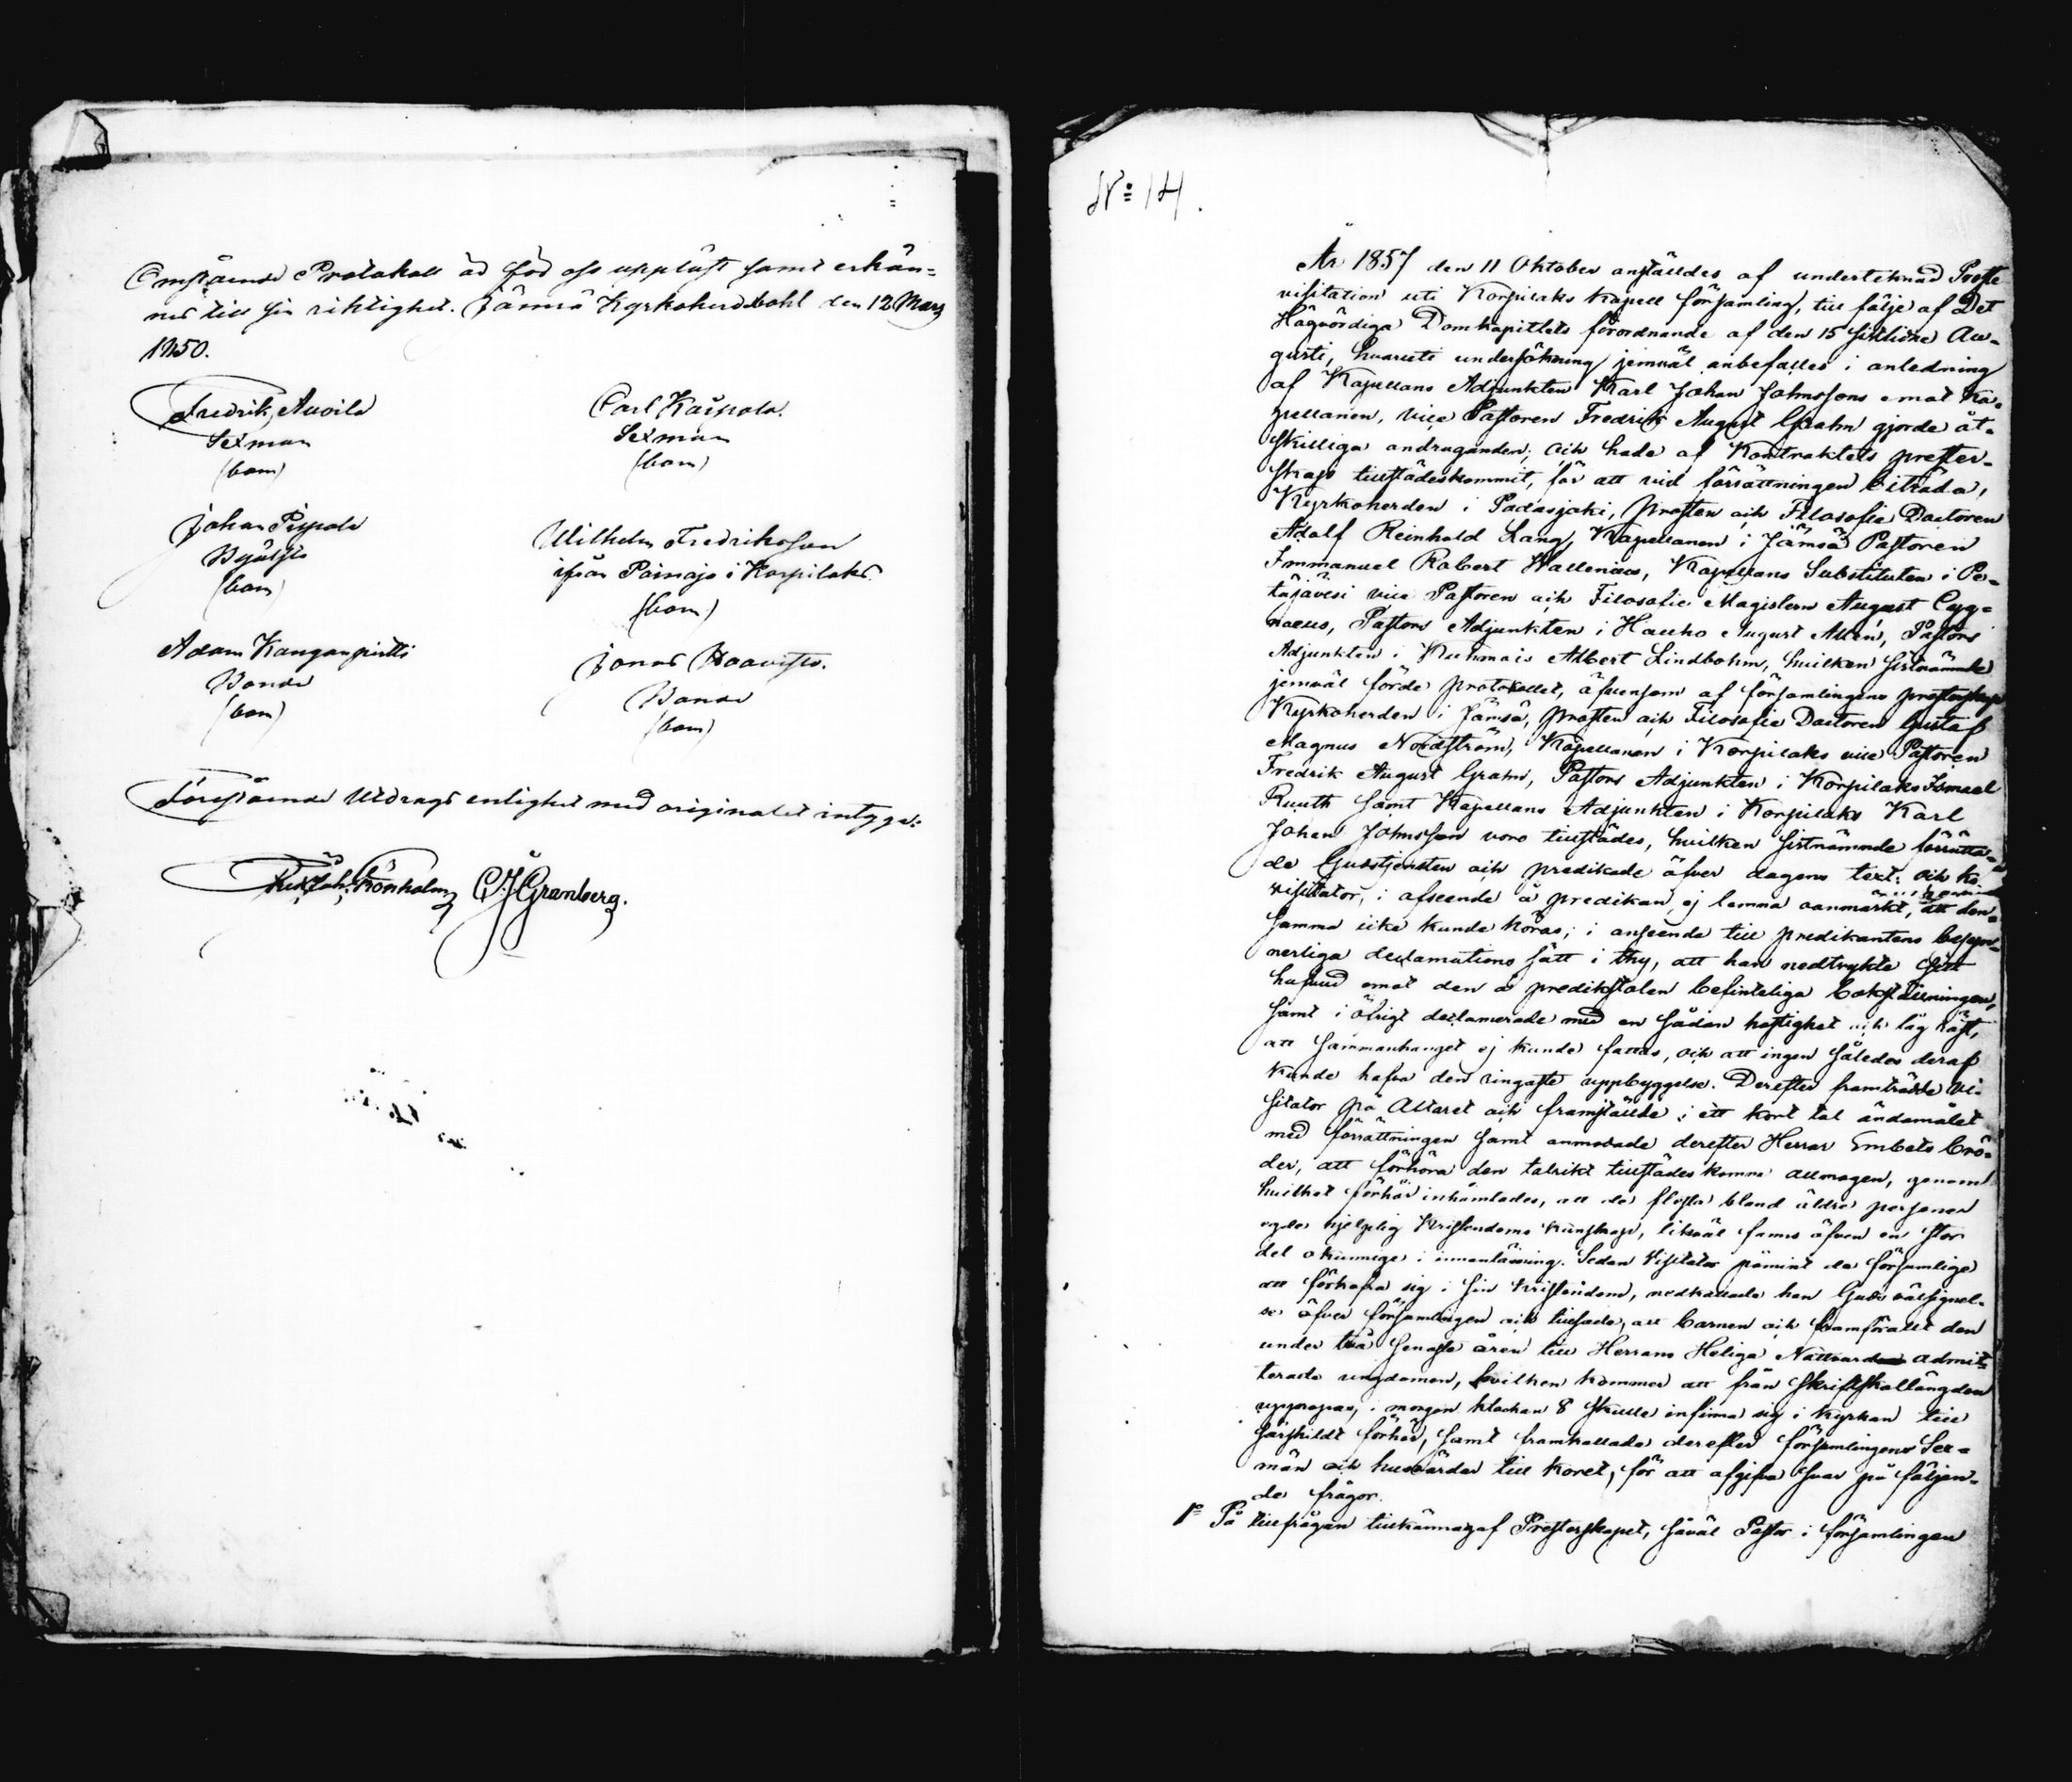 Omstående Protokoll är för oss uppläst samt erkän-
nes till sin riktighet. Jämsä Kyrkoherdebohl den 12 Mars
1850.
Fredrik Auvila
Sexman
(bom)
Carl Kaipola.
Sexman
(bom)
Johan Pispola
(bom)
Wilhelm Fredriksson
ifrån Päinajo i Korpilaks.
(bom)
Adam Kanganpirtti
Bonde
(bom)
Jonas Haavisto.
Bonde
(bom)
Förestående Utdrags enlighet med originalet intyga:
CJ Granberg.
No 14.
År 1857 den 11 Oktober anställdes af undertecknad Proste
visitation uti Korpilaks Kapell församling, till följe af Det
Högvördiga Domkapitlets förordnande af den 15 sistlidne Au-
gusti, hvaruti undersökning jemväl anbefalles i anledning
af Kapellans Adjunkten Karl Johan Johnssons emot Ka-
pellanen, vice Pastoren Fredrik August Grahn gjorde åt-
skilliga andraganden; och hade af Kontraktets prester-
skap tillstädeskommit, för att vid förrättningen biträda,
Kyrkoherden i Padasjoki, Prosten och Filosofie Doctoren
Adolf Reinhold Lang, Kapellanen i Jämsä Pastoren
Immanuel Robert Wallenius, Kapellans Substituten i Pe-
täjävesi vice Pastoren och Filosofie Magistern August Cyg-
naeus, Pastors Adjunkten i Hauho August Allén, Pastors
Adjunkten i Kuhmois Albert Lindbohm, hvilken sistnämnde
jemväl förde protokollet, äfvensom af församlingens presterskap
Kyrkoherden i Jämsä, Prosten och Filosofie Doctoren Gustaf
Magnus Nordström, Kapellanen i Korpilaks vice Pastoren
Fredrik August Grahn, Pastors Adjunkten i Korpilaks Ismael
Ruuth samt Kapellans Adjunkten i Korpilaks Karl
Johan Johnsson voro tillstädes, hvilken sistnämnde förrätta-
de Gudstjensten och predikade öfver dagens text; och
visitator, i afseende å predikan, ej lemna oanmärkt, att den-
samma icke kunde höras; i anseende till predikantens besyn-
nerliga declamations sätt i thy, att han nedtryckte sitt
hufvud emot den å predikstolen befinteliga bokställningen,
samt i öfrigt declamerade med en sådan haftighet och låg röst,
att sammanhanget ej kunde fattas, och att ingen således deraf
kunde hafva den ringaste uppbyggelse. Derefter framträdde Vi-
sitator på Altaret och framställde i ett kort tal ändamålet
med förrättningen samt anmodade derefter Herrar Embets brö-
der, att förhöra den talrikt tillstädes komna allmogen, genom
hvilket förhör inhämtades, att de flesta bland äldre personer
egde hjelplig Kristendoms kunskap, likväl fanns äfven en stor
del okunnige i innanläsning. Sedan Visitator påmint de försumlige
att förkofra sig i sin Kristendom, nedkallade han Guds välsignel-
se öfver församlingen och tillsade, att barnen och framförallt den
under två senaste åren till Herrans Heliga Nattvard admit-
terade ungdomen, hvilken kommer att från Skriftskollängden
uppropas, i morgon klockan 8 skulle infinna sig i Kyrkan till
särskildt förhör, samt framkallade derefter församlingens Sex-
män och husvärdar till Koret, för att afgifva svar på följan-
de frågor.
1o På tillfrågan tillkännagaf Presterskapet, såväl Pastor i församlingen